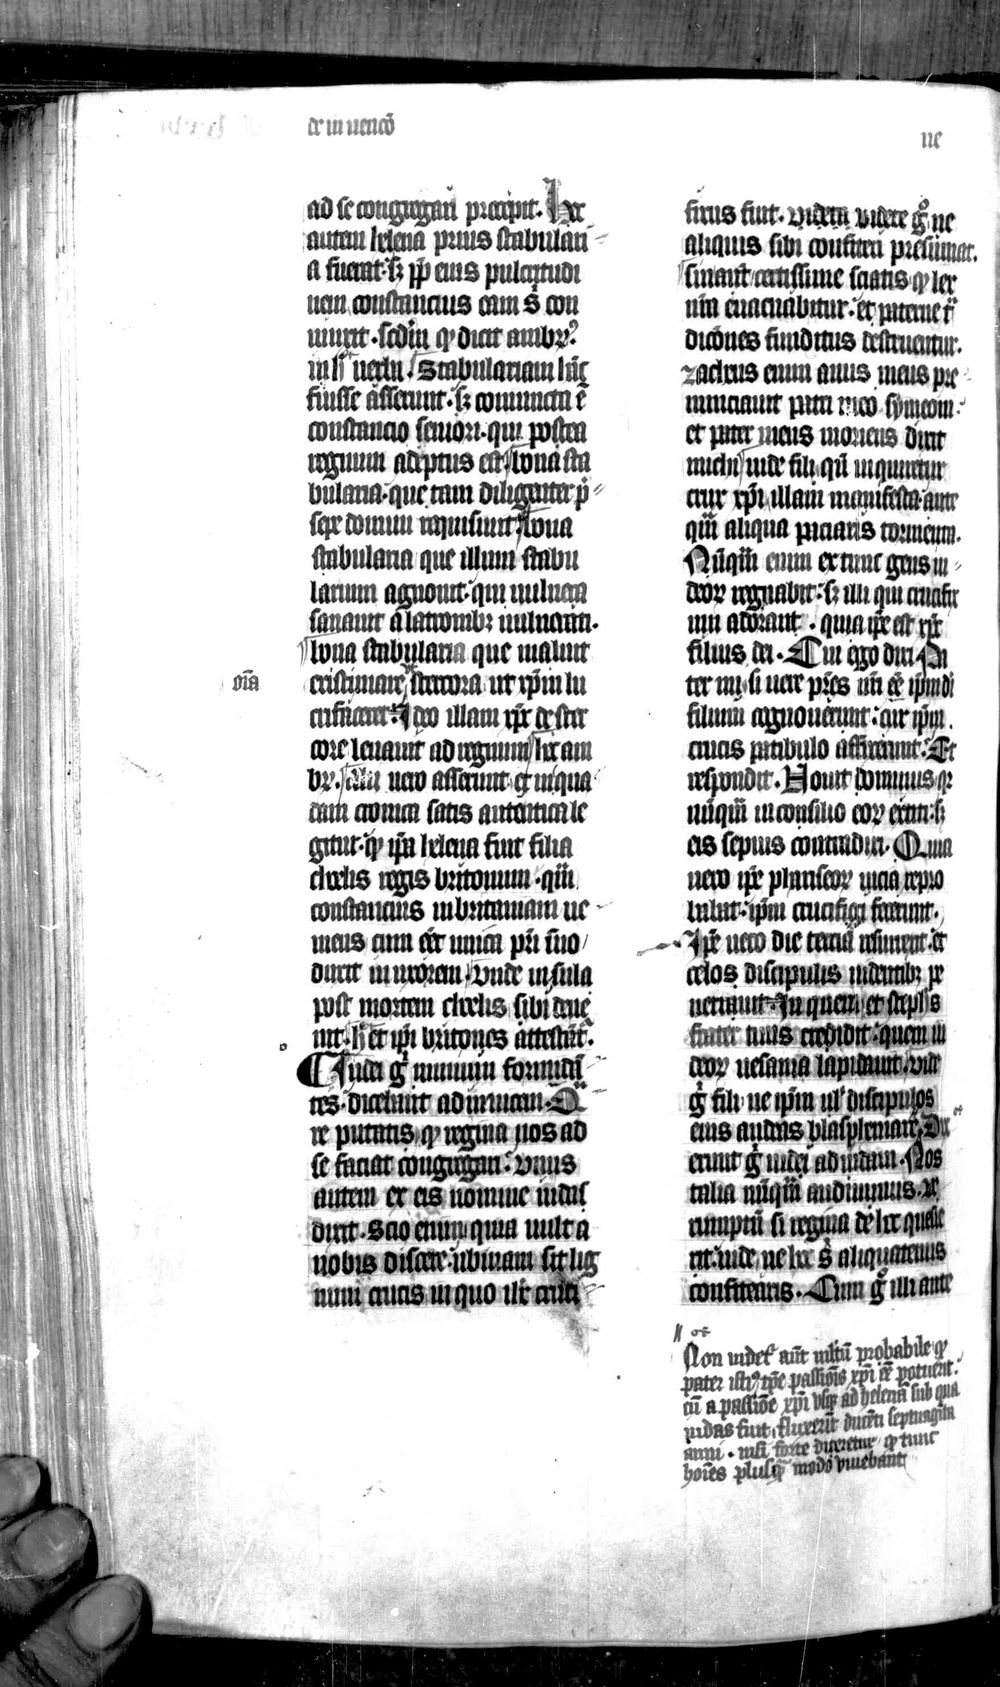 de inuencō
ne
ad se congregari precepit. Hec
autem helena prius stabulari
a fuerat. sꝫ ꝓpt̄ eius pulcritudi
nem constancius eam s̄ con
iunxit. scdm̄ qͥ dicit ambrꝰ.
in hͨ verbū. Stabulariam hāc
fuisse asserunt. sꝫ coniuncta ē
constancio seniori. qui postea
regnum adeptus est. bona sta
bularia. que tam diligenter p̄
sepe domini requisiuit. bona
stabularia que illum stabu
larium agnouit. qui uulnera
sanauit a latronibꝫ uulnerati.
bona stabularia que maluit
oīa
existimare stercora ut xp̄m lu
crifaceret. Ideo illam xp̄c de ster
core leuauit ad regnum hec am
br̄. Alii uero asserunt et in qua
dam cronica satis autentica le
gitur. qͥ ip̄a helena fuit filia
chelis regis britonum. qm̄
constancius in britaniam ue
niens cum eēt unica pr̄i suo
duxit in uxorem. vnde insula
post mortem chelis sibi deue
nit. hͨ et ip̄i britones attestāt̄.
Iudei gͥ nimium formidā
tes. dicebant ad inuicem. Qͣ
re putatis qͥ regina nos ad
se faciat congregari. vnus
autem ex eis nomine iudas
dixit. Scio enim quia uult a
nobis discere. ubinam sit lig
num crucis in quo ih̄c cruci
fixus fuit. videte videte gͦ ne
aliquis sibi confiteri presumat.
sin aut̄ certissime sciatis qͥ lex
nr̄a euacuabitur. et paterne tͣ
dicōnes funditus destruentur.
zacheus enim auus meus pre
nunciauit patri meo symeoni.
et pater meus moriens dixit
michi vide fili qn̄ inquiretur
crux xp̄i illam manifesta ante
qm̄ aliqua paciaris tormenta.
Nūqm̄ enim ex tunc gens iu
deoꝝ regnabit. sꝫ illi qui crucifix
um adorant. quia ip̄e est xp̄c
filius dei. Cui ego dixi. Pa
ter mi. si uere pr̄es nr̄i eē ip̄m di
filium agnouerunt. cur ip̄m
crucis patibulo affixerunt. Et
respondit. Nouit dominus qꝛ
nūqm̄ in consilio eoꝝ extiti. sꝫ
eis sepius contradixi. Quia
uero ip̄e phariseoꝝ uicia repro
babat. ip̄m crucifigi fecerunt.
Ip̄e uero die tercia resurrexit. et
celos discipulis uidentibꝫ pe
netrauit. In quem et steph̄s
frater tuus credidit. quem iu
deoꝝ uesania lapidauit. vide
gͥ fili ne ip̄m ul̄ discipulos
eius audeas blasphemare. Dix
erunt gͥ iudei ad iudam. Nos
talia nūqm̄ audiuimus. ve
rumptn̄ si regina de hec quesie
rit. uide ne hec s̄ aliquatenus
confitearis. Cum gͦ illi ante
Non uidet̄ aut̄ ml̄tū probabile qͥ
pater istiꝰ tp̄e passiōis xp̄i eē potuerit.
cū a passiōe xp̄i usqꝫ ad helenā sub qua
iudas fuit, fluxerīt ducēti septuaginta
anni. nisi forte diceretur qͥ tunc
hoīes plusqͣ modo viuebant